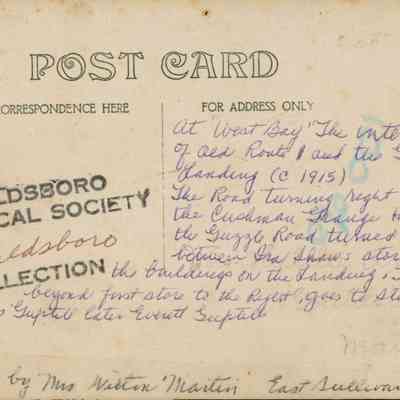 POST CARD
CORRESPONDENCE HERE
FOR ADDRESS ONLY
At "West Bay" The inte
of old Route 1 and the G
Landing (c 1915)
The Road turning right
the Cushman Grange
the Guzzle Road turned
between Ira Shaw's stor
the buildings on the Landing,
beyond first store to the Right, goes to St
Guptil later Everett Guptill
LDSBORO
CAL SOCIETY
ldsboro
LLECTION
by Mrs Wilton Martin East Sulliva